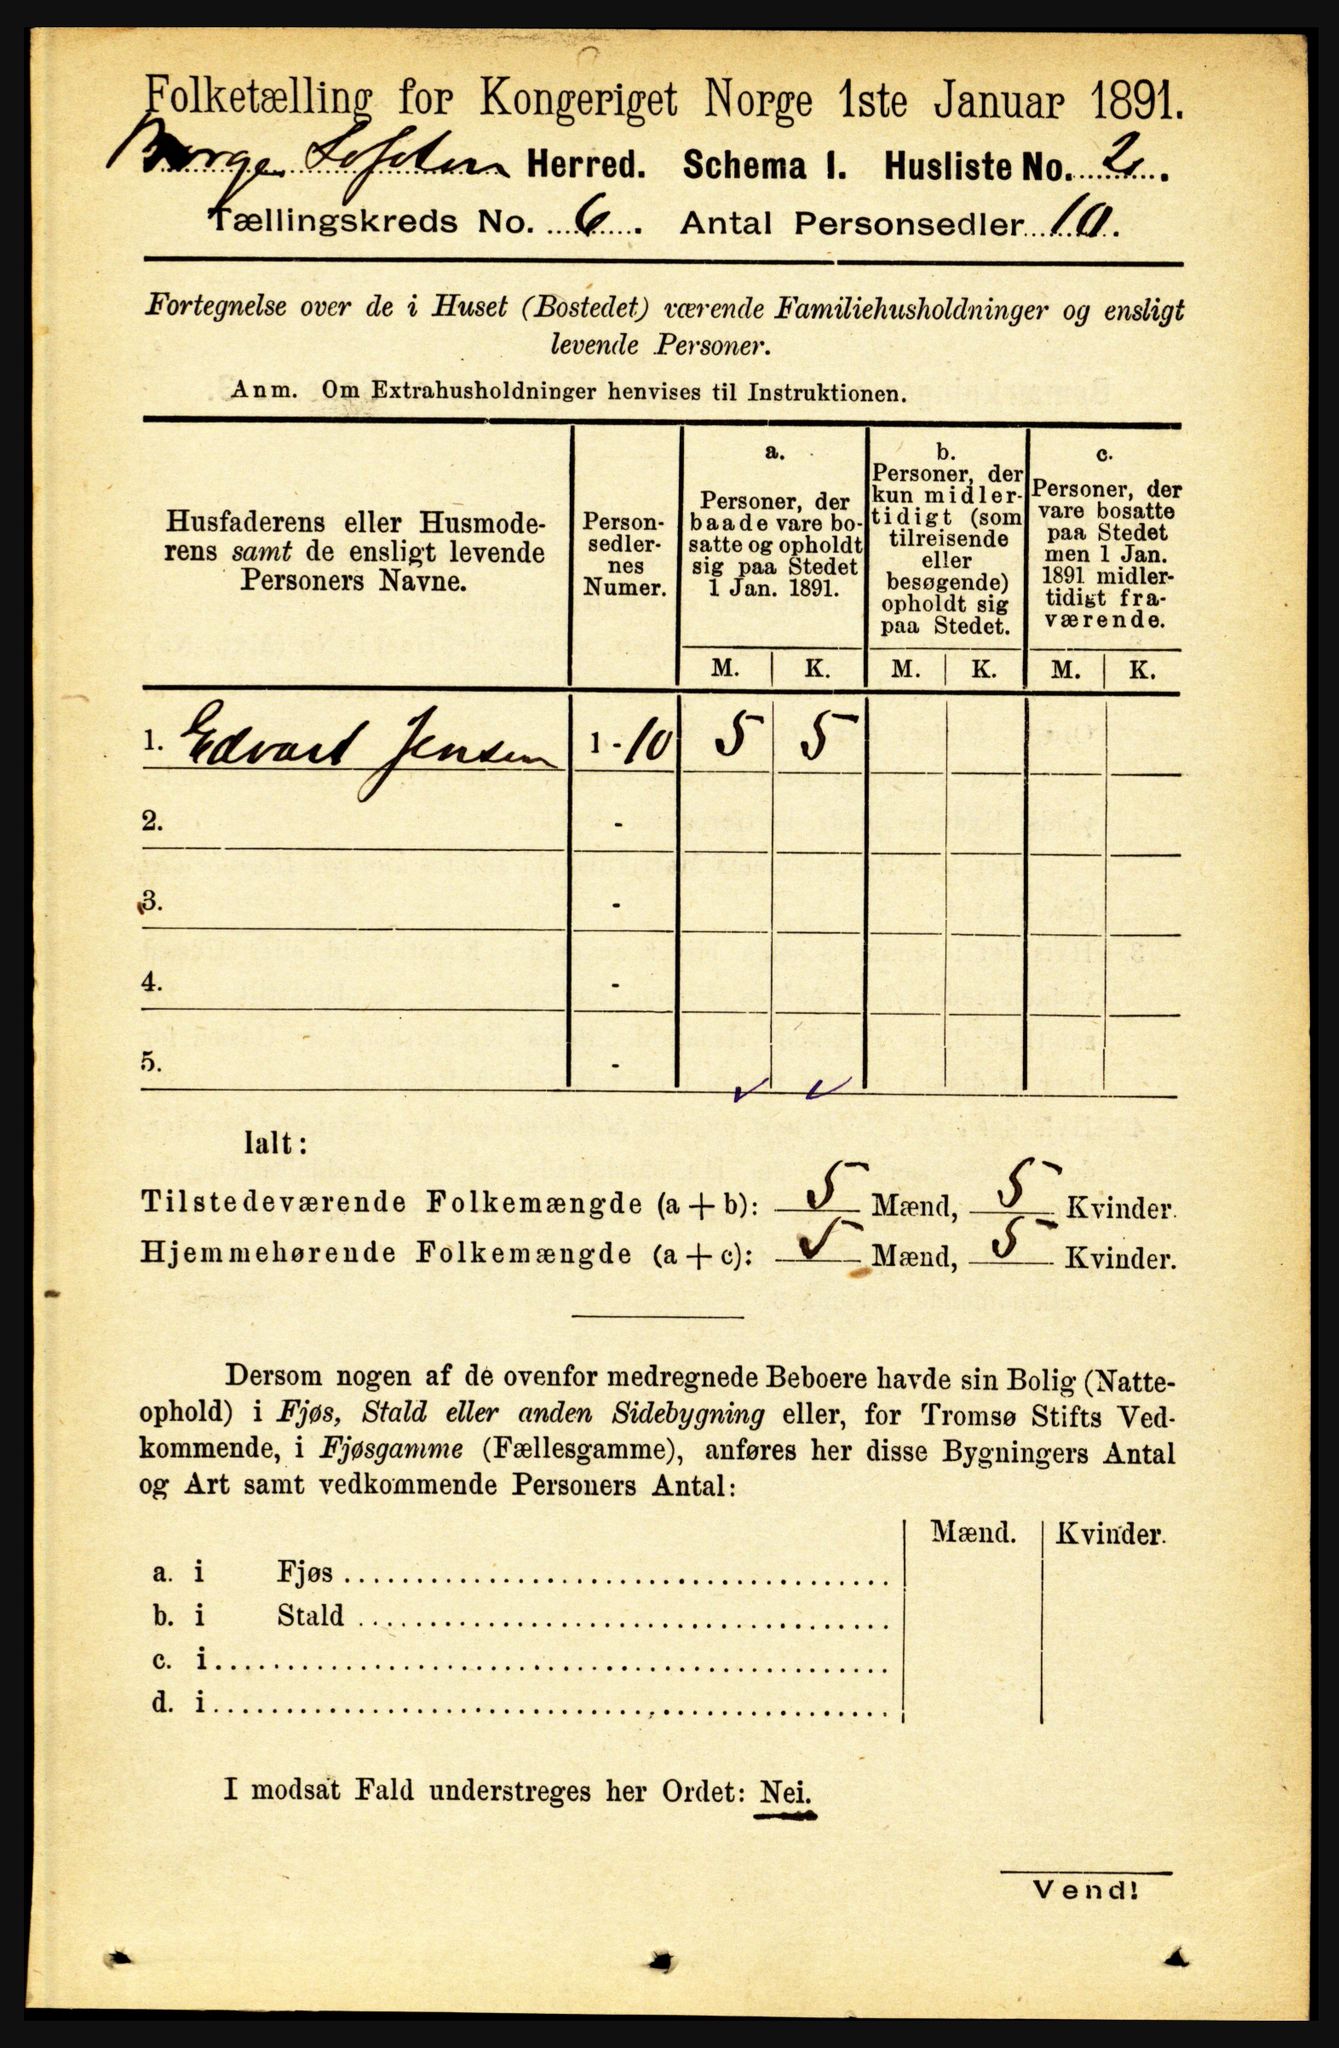 Folketælling for Kongeriget Norge 1ste Januar 1891.
Borge Lofoten Herred. Schema I. Husliste No. 2.
Tællingskreds No. 6. Antal Personsedler 10.
Fortegnelse over de i Huset (Bostedet) værende Familiehusholdninger og ensligt
levende Personer.
Anm. Om Extrahusholdninger henvises til Instruktionen.
Husfaderens eller Husmode-
rens samt de ensligt levende
Personers Navne.
Person-
sedler-
nes
Numer.
a.
Personer, der
baade vare bo-
satte og opholdt
sig paa Stedet
1 Jan. 1891.
b.
Personer, der
kun midler-
tidigt (som
tilreisende
eller
besøgende)
opholdt sig
paa Stedet.
c.
Personer, der
vare bosatte
paa Stedet
men 1 Jan.
1891 midler-
tidigt fra-
værende.
M. K. M. K. M. K.
1. Edvart Jensen 1 - 10 5 5
2. -
3. -
4. -
5. -
Ialt:
Tilstedeværende Folkemængde (a + b): 5 Mænd, 5 Kvinder.
Hjemmehørende Folkemængde (a + c): 5 Mænd, 5 Kvinder.
Dersom nogen af de ovenfor medregnede Beboere havde sin Bolig (Natte-
ophold) i Fjøs, Stald eller anden Sidebygning eller, for Tromsø Stifts Ved-
kommende, i Fjøsgamme (Fællesgamme), anføres her disse Bygningers Antal
og Art samt vedkommende Personers Antal:
Mænd. Kvinder.
a. i Fjøs
b. i Stald
c. i
d. i
I modsat Fald understreges her Ordet: Nei.
Vend!